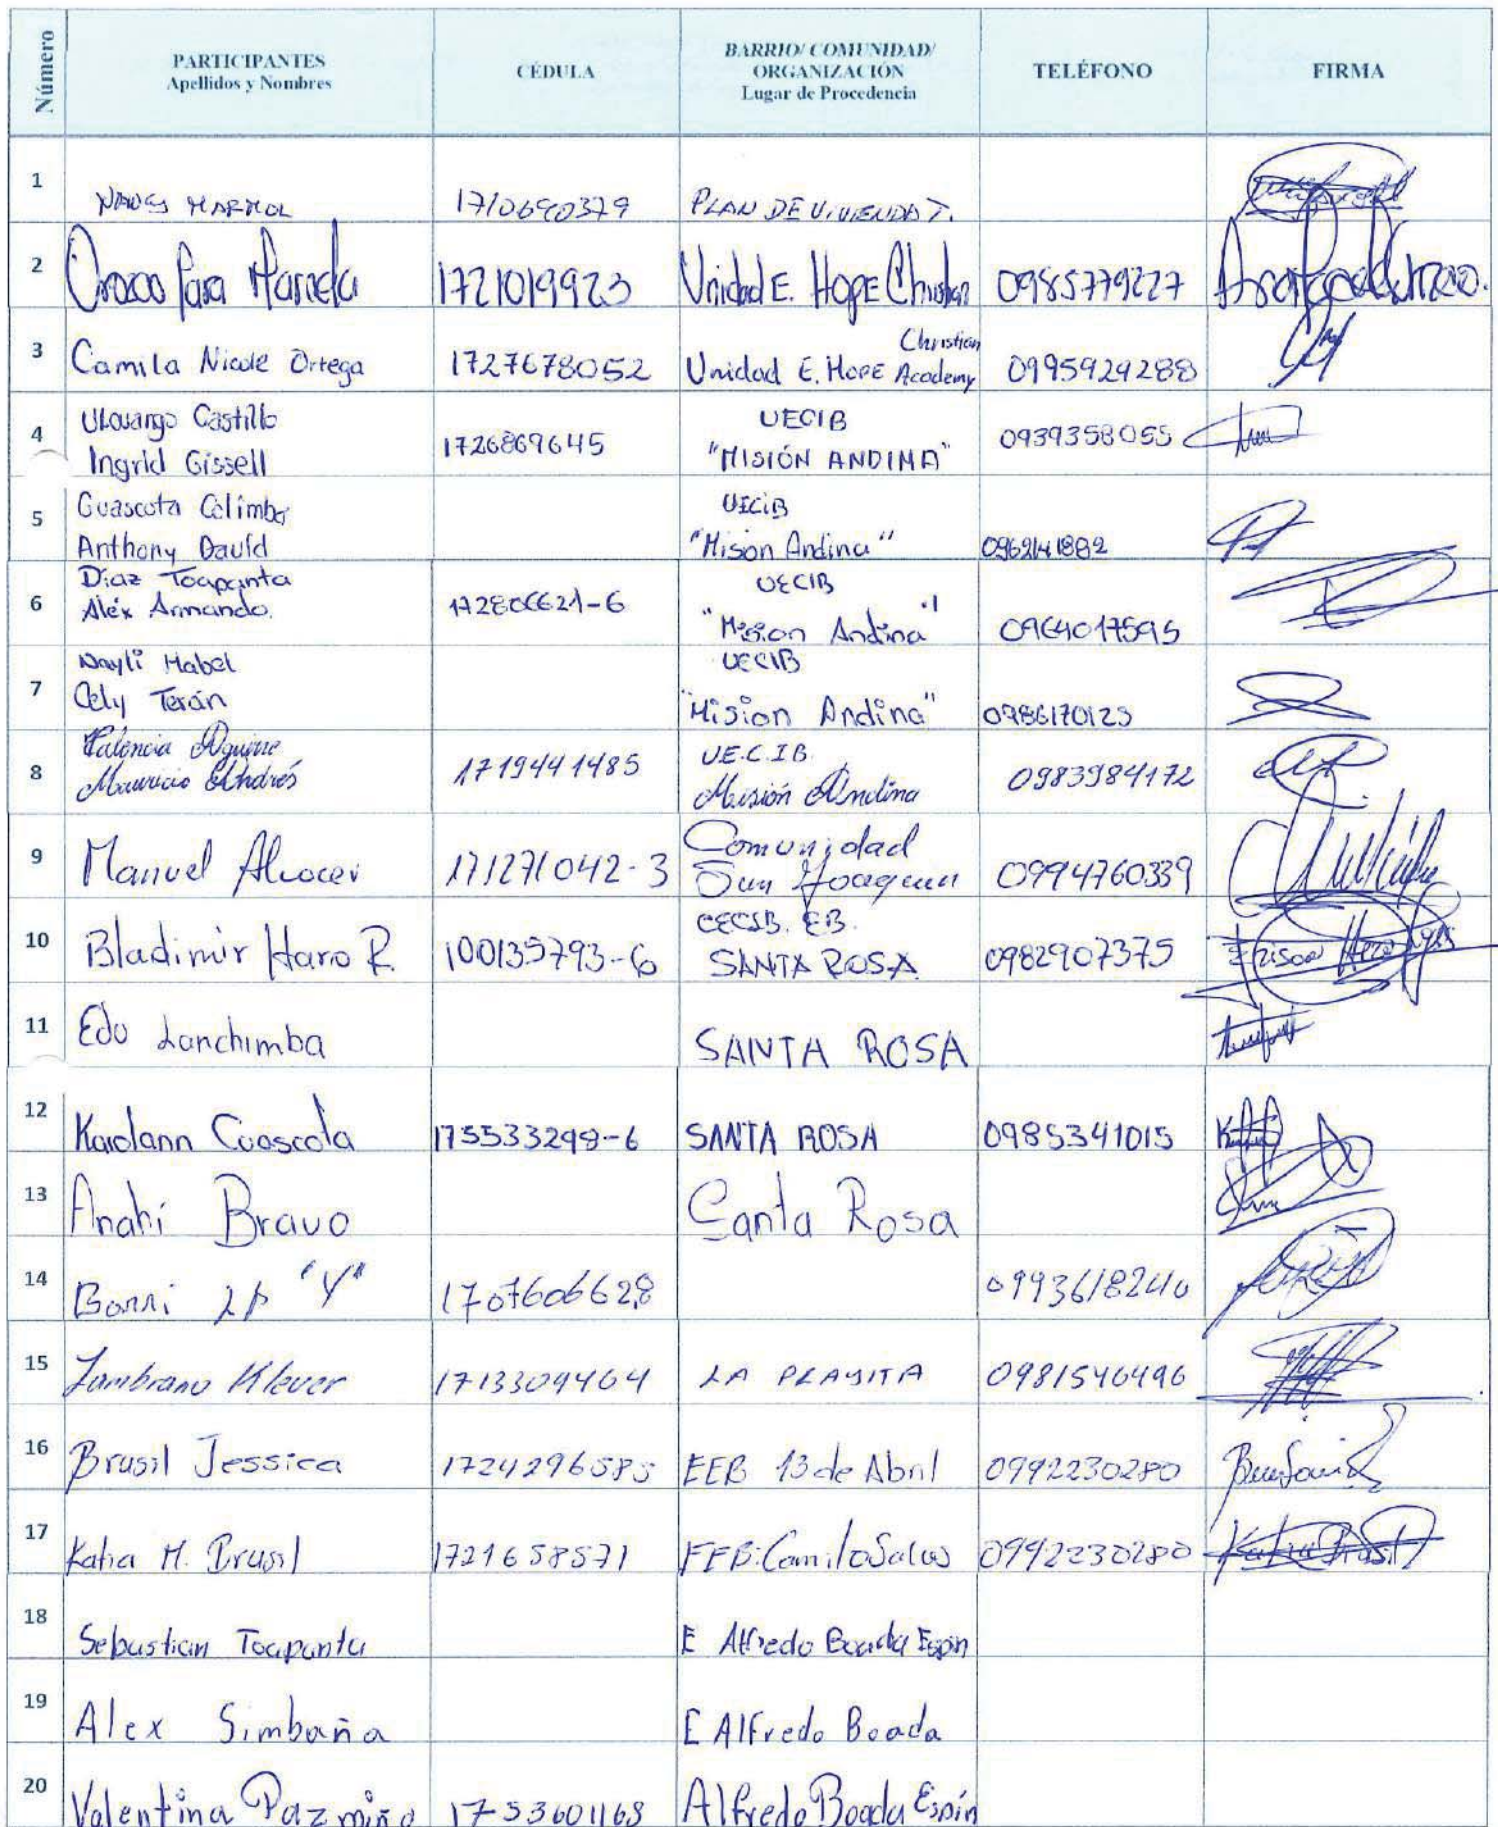 Número
PARTICIPANTES
Apellidos y Nombres
CÉDULA
BARRIO/ COMUNIDAD/
ORGANIZACIÓN
Lugar de Procedencia
TELÉFONO
FIRMA
1 NANCY MARMOL 1710690379 PLAN DE VIVIENDA T.
2 Orozco Para Marcela 1721019923 Unidad E. HOPE Christian 0985779227
3 Camila Nicole Ortega 1727678052 Unidad E. HOPE Christian Academy 0995929288
4 Ulcuango Castillo
Ingrid Gissell 1726869645 UECIB
"MISIÓN ANDINA" 0939358055
5 Guascota Colimba
Anthony David UECIB
"Mison Andina" 0962141882
6 Diaz Toapanta
Alex Armando. 172806621-6 UECIB
"Mision Andina" 0964017595
7 Nayli Mabel
Cely Terán UECIB
"Mision Andina" 0986170123
8 Valencia Aguirre
Mauricio Andrés 1719441485 U.E.C.I.B.
Misión Andina 0983984172
9 Manuel Alcocer 171271042-3 Comunidad
San Joaquin 0994760339
10 Bladimir Haro R. 100135793-6 CECIB. EB.
SANTA ROSA. 0982907375
11 Edu Lanchimba SANTA ROSA
12 Karolann Cuascota 175533298-6 SANTA ROSA 0985341015
13 Anahí Bravo Santa Rosa
14 Barri LA "Y" 1707606628 0993618240
15 Zambrano Klever 1713309464 LA PLAYITA 0981546496
16 Brusil Jessica 1724296585 EEB 13 de Abril 0992230280
17 Katia M. Brusil 1721658571 EEB: Camilo Salas 0992230280 Katia Brusil
18 Sebastian Toapanta E Alfredo Boada Espin
19 Alex Simbaña E Alfredo Boada
20 Valentina Pazmiño 1753601168 Alfredo Boada Espín